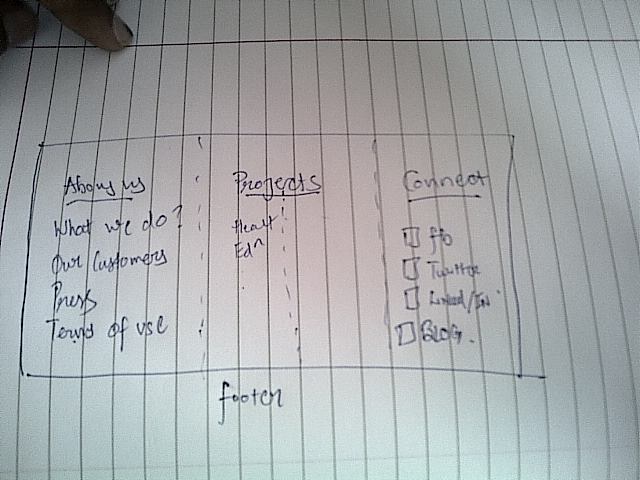 About us
What we do?
Our Customers
Press
Terms of use
Projects
Edn
Connect
fb
Twitter
Linked/In.
Blog.
footer